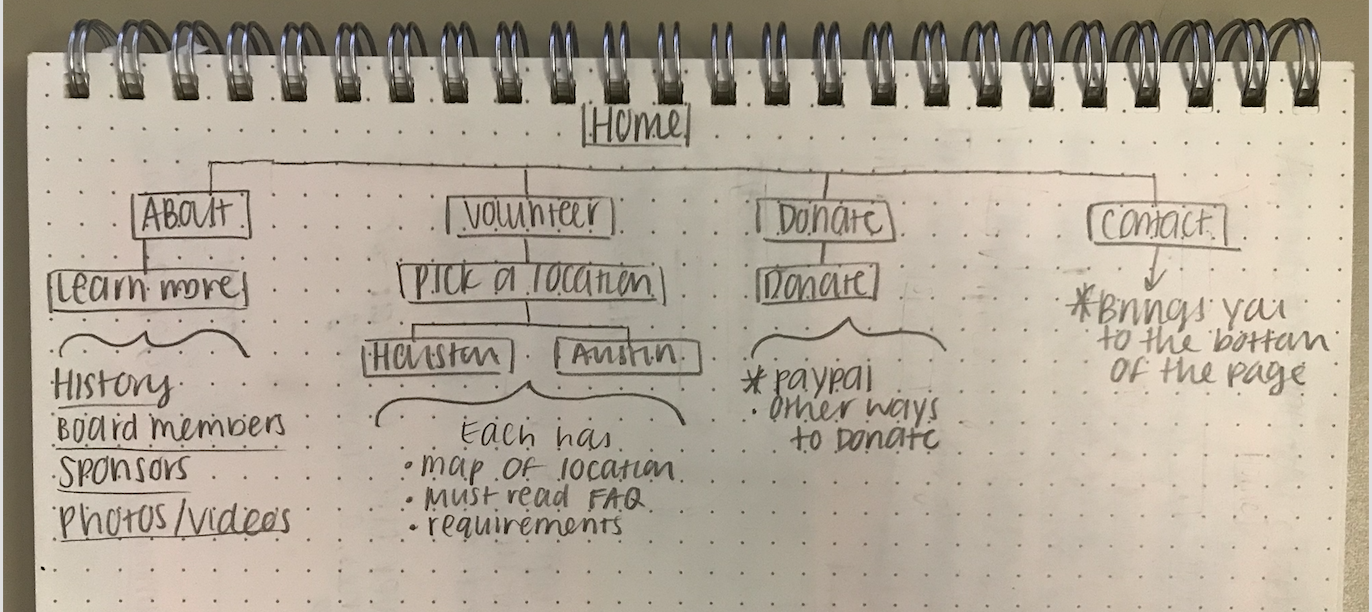 Home
About
Volunteer
Donate
Contact
Learn more
Pick a location
Donate
Houston
Austin
History
Board members
Sponsors
Photos/videos
Each has
• map of location
• Must read FAQ
• requirements
* paypal
• other ways
to Donate
* Brings you
to the bottom
of the page